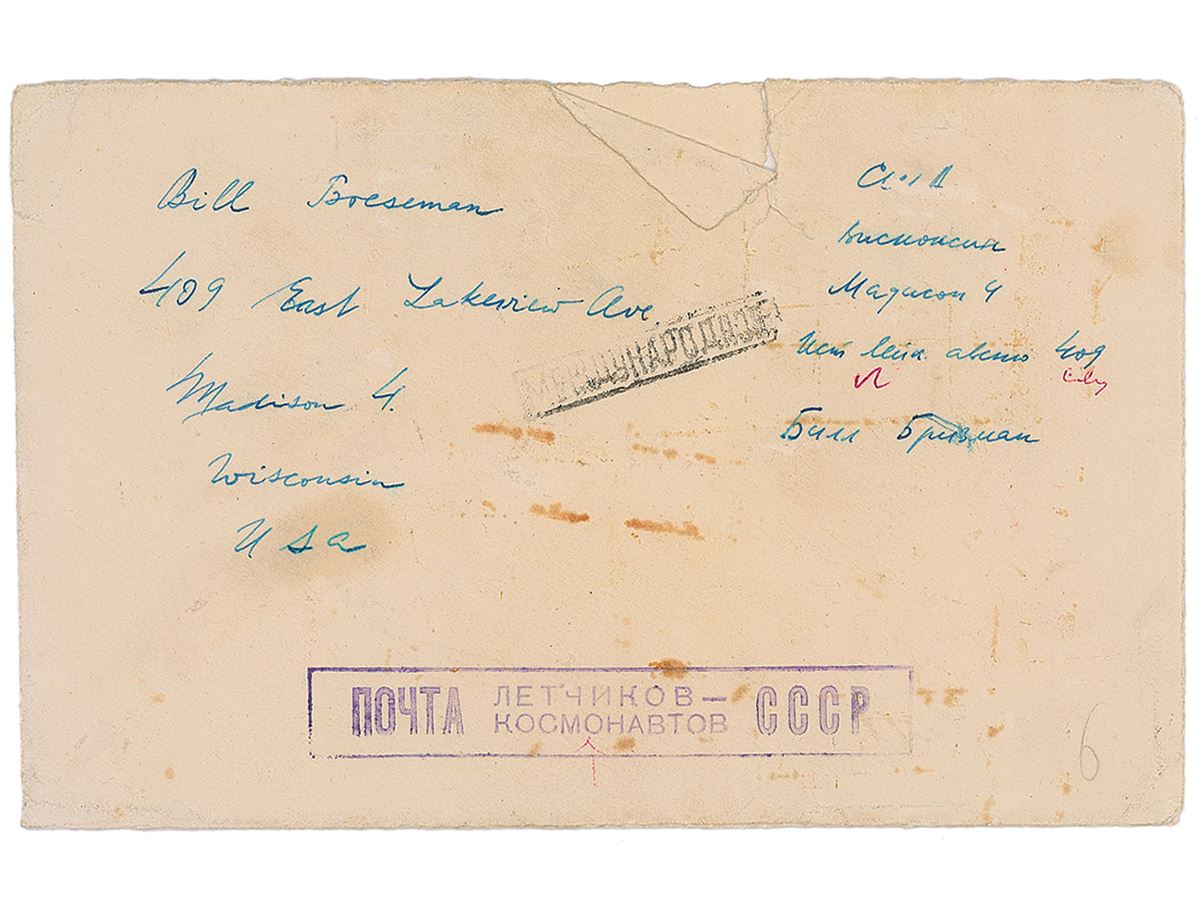 Bill Boeseman
409 East Lakeview Ave
Madison 4.
Wisconsin
USA
США
Висконсин
Мадисон 4
409
Билл Бризман
МЕЖДУНАРОДНОЕ
ПОЧТА ЛЕТЧИКОВ— СССР
КОСМОНАВТОВ
6